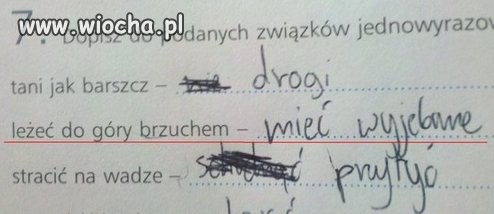 www.wiocha.pl
7. Dopisz do podanych związków jednowyrazow
tani jak barszcz – drogi
leżeć do góry brzuchem – mieć wyjebane
stracić na wadze – przytyć